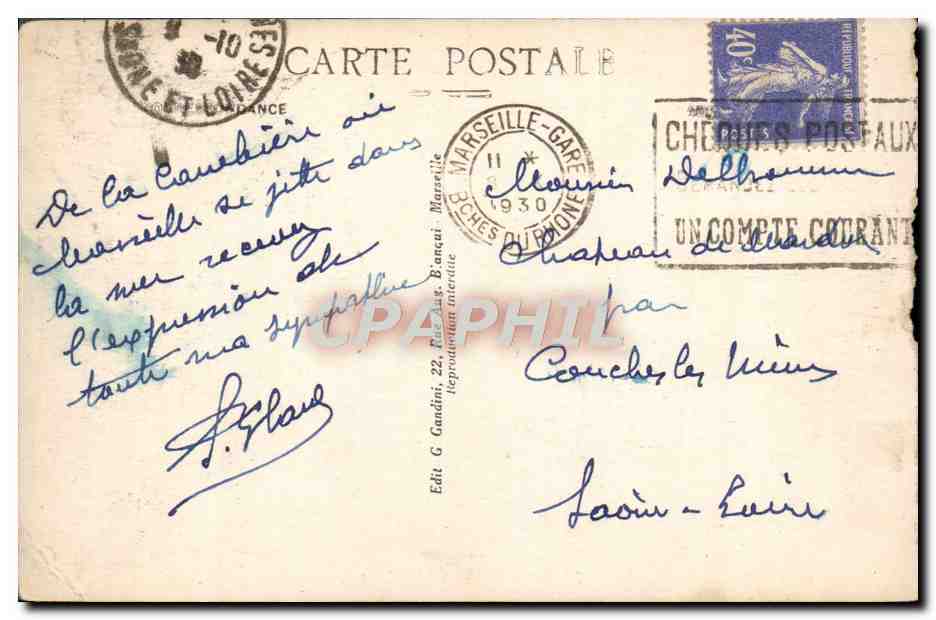 CARTE POSTALE
CORRESPONDANCE
SAONE ET LOIRE
-10
30
De la Canebière où
Marseille se jette dans
la mer recevez
l'expression de
toute ma sympathie
MARSEILLE-GARE
11 *
1930
BCHES DU RHONE
40c
POSTES
CHEQUES POSTAUX
DEMANDEZ
UN COMPTE COURANT
Monsieur Delhomme
Chapeau de
par
Couches les Mines
Saône-Loire
Edit G Gandini, 22, Rue Aug. Blanqui - Marseille
Reproduction interdite
CPAPHIL